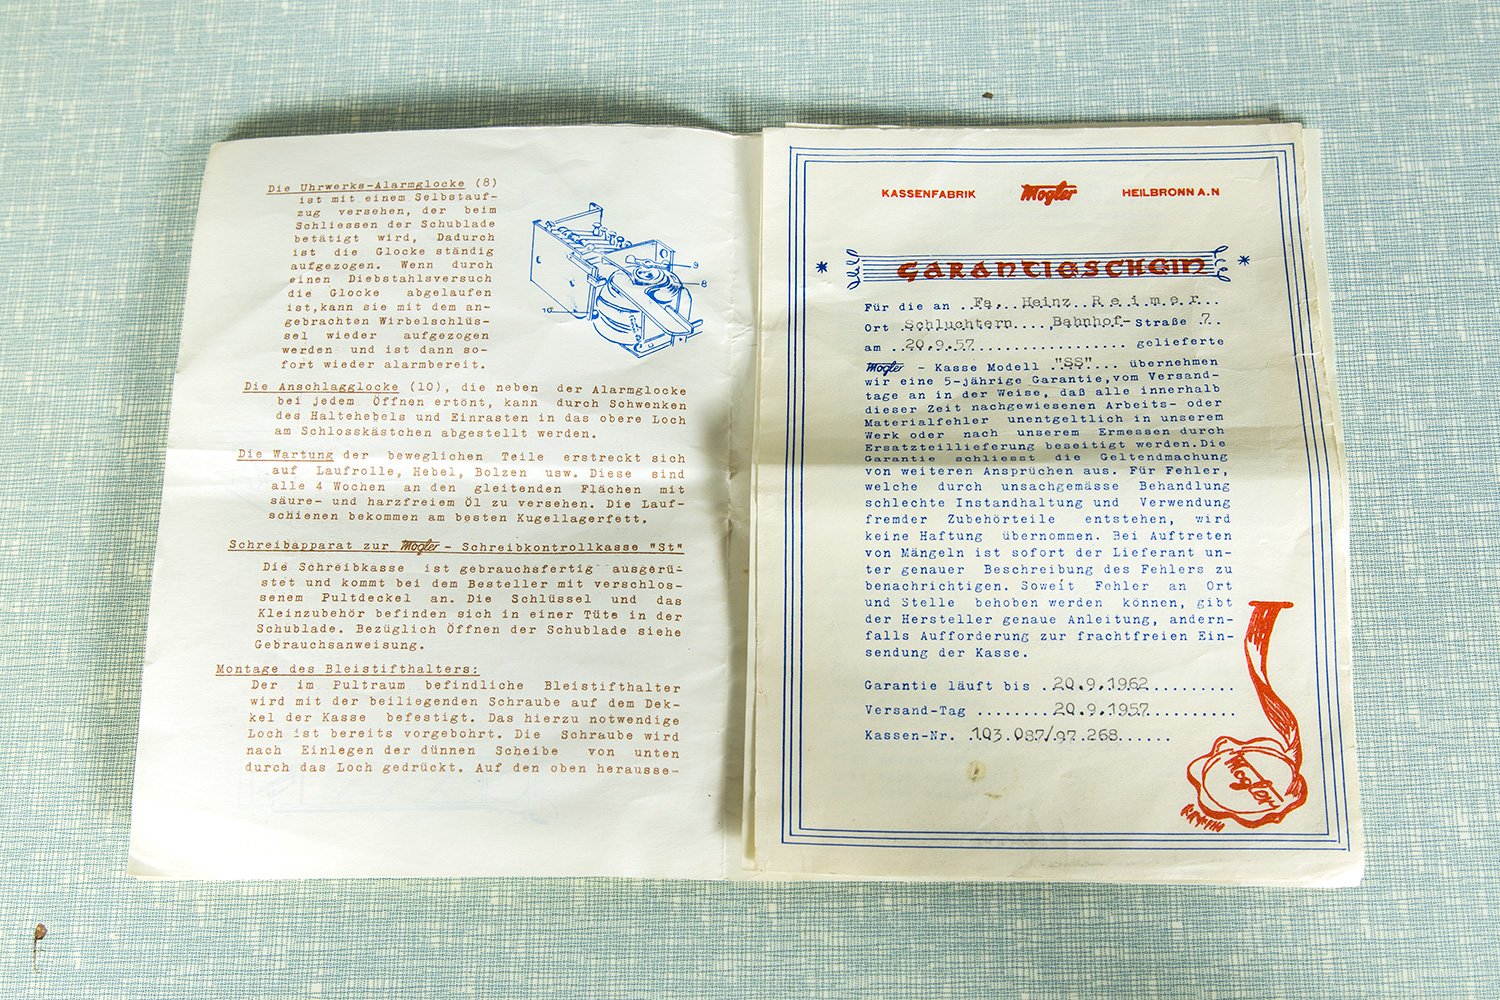 Die Uhrwerks-Alarmglocke (8)
ist mit einem Selbstauf-
zug versehen, der beim
Schliessen der Schublade
betätigt wird, Dadurch
ist die Glocke ständig
aufgezogen. Wenn durch
einen Diebstahlsversuch
die Glocke abgelaufen
ist,kann sie mit dem an-
gebrachten Wirbelschlüs-
sel wieder aufgezogen
werden und ist dann so-
fort wieder alarmbereit.
9
8
10
Die Anschlagglocke (10), die neben der Alarmglocke
bei jedem Öffnen ertönt, kann durch Schwenken
des Haltehebels und Einrasten in das obere Loch
am Schlosskästchen abgestellt werden.
Die Wartung der beweglichen Teile erstreckt sich
auf Laufrolle, Hebel, Bolzen usw. Diese sind
alle 4 Wochen an den gleitenden Flächen mit
säure- und harzfreiem Öl zu versehen. Die Lauf-
schienen bekommen am besten Kugellagerfett.
Schreibapparat zur Mogler - Schreibkontrollkasse "St"
Die Schreibkasse ist gebrauchsfertig ausgerü-
stet und kommt bei dem Besteller mit verschlos-
senem Pultdeckel an. Die Schlüssel und das
Kleinzubehör befinden sich in einer Tüte in der
Schublade. Bezüglich Öffnen der Schublade siehe
Gebrauchsanweisung.
Montage des Bleistifthalters:
Der im Pultraum befindliche Bleistifthalter
wird mit der beiliegenden Schraube auf dem Dek-
kel der Kasse befestigt. Das hierzu notwendige
Loch ist bereits vorgebohrt. Die Schraube wird
nach Einlegen der dünnen Scheibe von unten
durch das Loch gedrückt. Auf den oben herausse-
KASSENFABRIK Mogler HEILBRONN A.N
GARANTIESCHEIN
Für die an ..Fa. Heinz Reimer...
Ort Schluchtern...., Bahnhof-Straße 7..
am ..20.9.57.................. gelieferte
Mogler - Kasse Modell ."SS".... übernehmen
wir eine 5-jährige Garantie,vom Versand-
tage an in der Weise, daß alle innerhalb
dieser Zeit nachgewiesenen Arbeits- oder
Materialfehler unentgeltlich in unserem
Werk oder nach unserem Ermessen durch
Ersatzteillieferung beseitigt werden.Die
Garantie schliesst die Geltendmachung
von weiteren Ansprüchen aus. Für Fehler,
welche durch unsachgemässe Behandlung
schlechte Instandhaltung und Verwendung
fremder Zubehörteile entstehen, wird
keine Haftung übernommen. Bei Auftreten
von Mängeln ist sofort der Lieferant un-
ter genauer Beschreibung des Fehlers zu
benachrichtigen. Soweit Fehler an Ort
und Stelle behoben werden können, gibt
der Hersteller genaue Anleitung, andern-
falls Aufforderung zur frachtfreien Ein-
sendung der Kasse.
Garantie läuft bis .20.9.1962.........
Versand-Tag ........20.9.1957..........
Kassen-Nr. .103.087/97.268......
Mogler